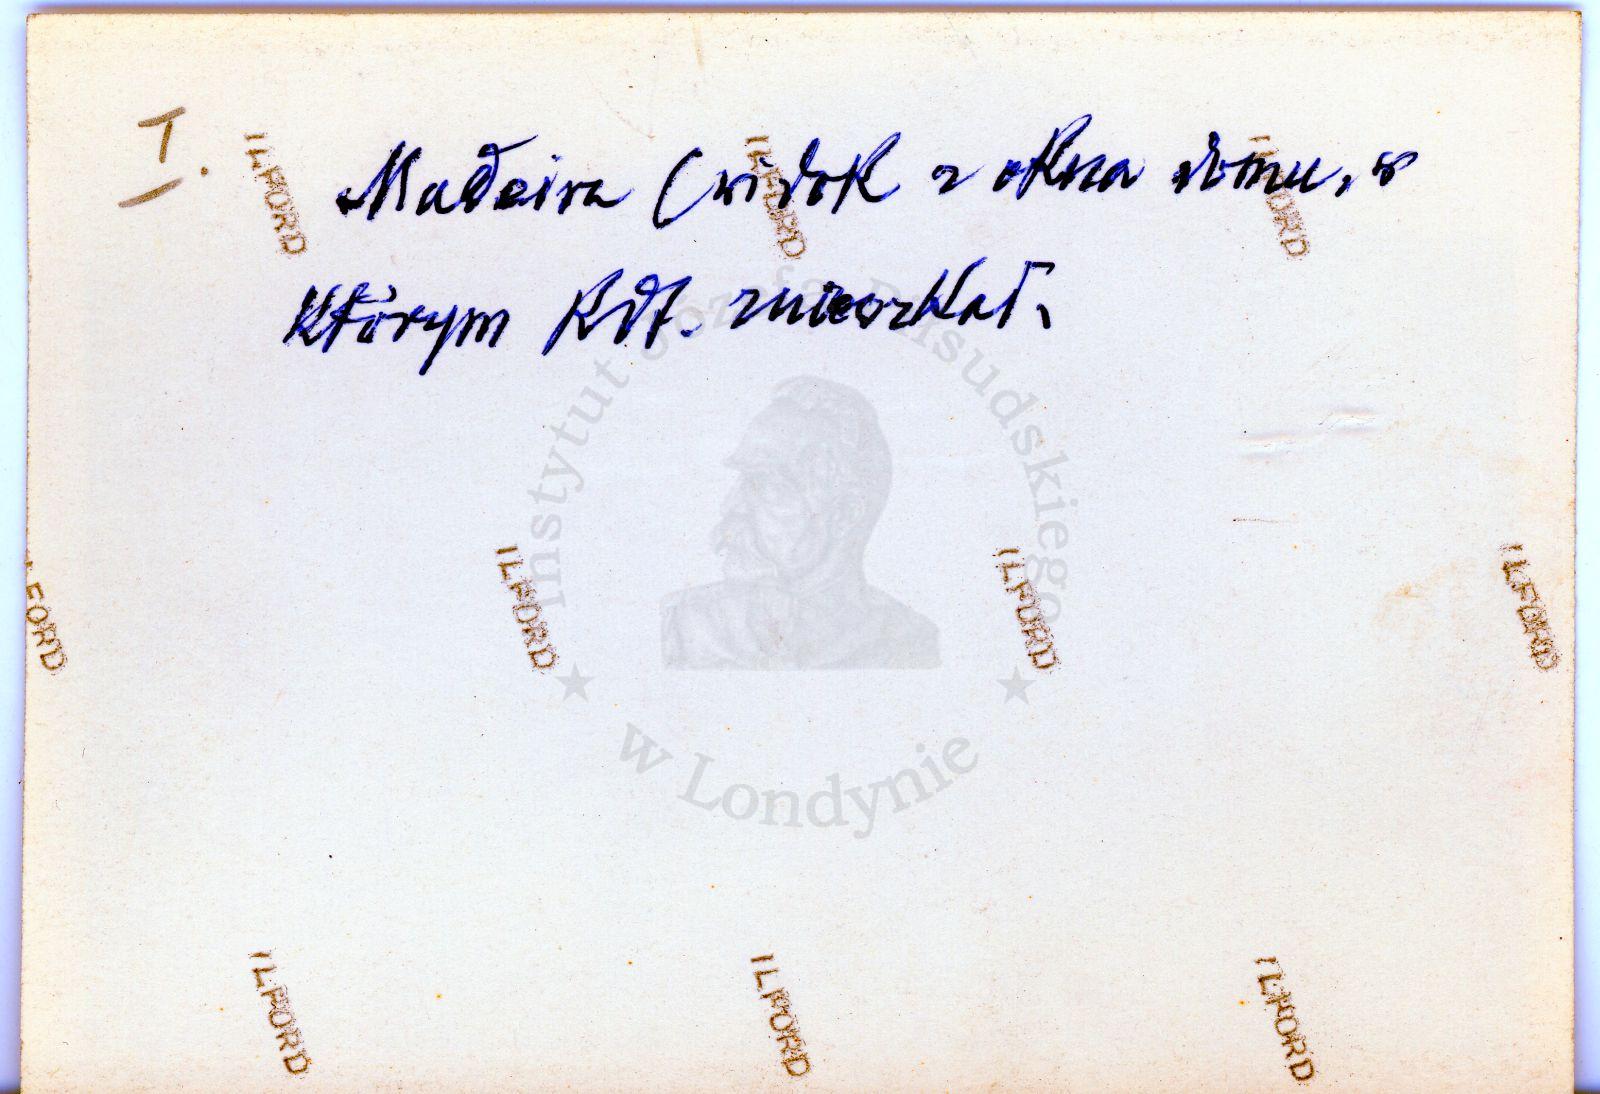 I.
Madeira (widok z okna domu, w
którym Kdt. mieszkał.
ILFORD ILFORD ILFORD
Instytut Józefa Piłsudskiego
w Londynie
ILFORD ILFORD ILFORD ILFORD
ILFORD ILFORD ILFORD